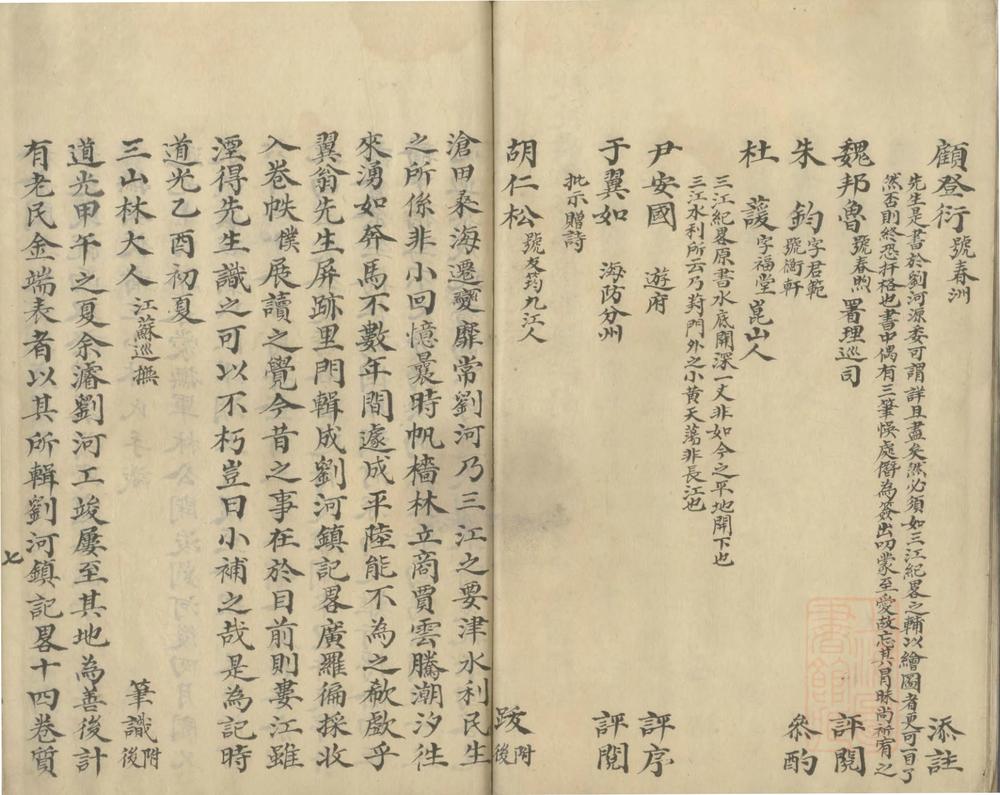 顧登衍 號春洲 添註
先生是書於劉河源委可謂詳且盡矣然必須如三江紀畧之輔以繪圖者更可一目了
然否則終恐扞格也書中偶有三筆悞處僭為簽出叨蒙至愛故忘其冒昧尚祈宥之
魏邦魯 號春煦 署理巡司 評閱
朱鈞 字君範 號衡軒 參酌
杜蘐 字福堂 崑山人
三江紀畧原書水底開深一丈非如今之平地開下也
三江水利所云乃葑門外之小黃天蕩非長江也
尹安國 遊府 評序
于翼如 海防分州 評閱
批示贈詩
胡仁松 號友筠九江人 跋附後
滄田桑海遷變靡常劉河乃三江之要津水利民生
之所係非小回憶曩時帆檣林立商賈雲騰潮汐徃
來湧如奔馬不數年間遽成平陸能不為之欷歔乎
翼翁先生屏跡里門輯成劉河鎮記畧廣羅徧採收
入卷帙僕展讀之覺今昔之事在於目前則婁江雖
湮得先生識之可以不朽豈曰小補之哉是為記時
道光乙酉初夏
三山林大人 江蘇巡撫 筆識附後
道光甲午之夏余濬劉河工竣屢至其地為善後計
有老民金端表者以其所輯劉河鎮記畧十四卷質
七